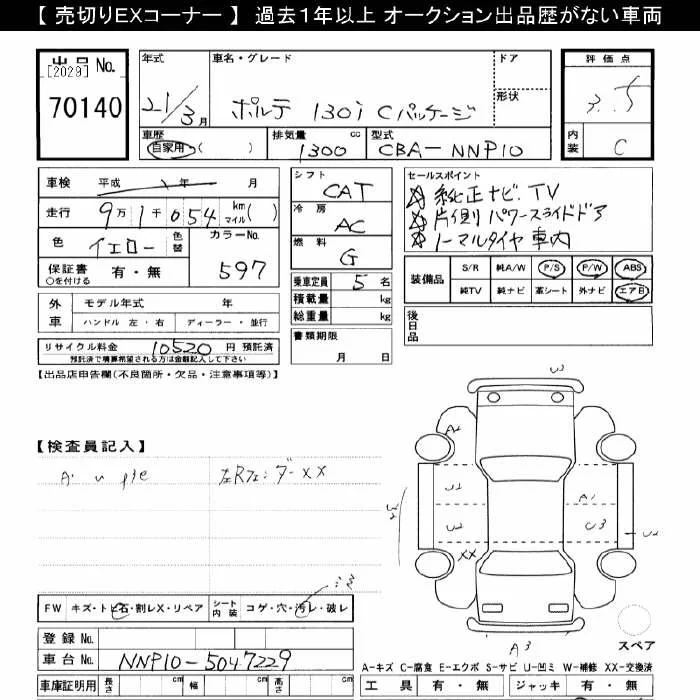 【 売切りEXコーナー 】 過去1年以上 オークション出品歴がない車両
出品 No.
[2029]
70140
年式 21/3月
車名・グレード ポルテ 130i Cパッケージ
ドア
形状
評価点 3.5
車歴 自家用・( )
排気量 1300 cc
型式 CBA-NNP10
内装 C
車検 平成 年 月
走行 9万1千054 km マイル( )
色 イエロー 色替
カラーNo. 597
保証書 有・無
○を付ける
外車 モデル年式 年
ハンドル 左・右 ディーラー・並行
リサイクル料金 10520 円 預託済
預託済で積算希望される方は金額記入して下さい
シフト CAT
冷房 AC
燃料 G
乗車定員 5 名
積載量 kg
総重量 kg
書類期限
月 日
セールスポイント
純正ナビ.TV
片側パワースライドドア
ノーマルタイヤ 車内
装備品 S/R 純A/W P/S P/W ABS
純TV 純ナビ 革シート 外ナビ エアB
後日品
【出品店申告欄(不良箇所・欠品・注意事項等)】
【検査員記入】
A・U
左Rフェ:ダーXX
FW キズ・トビ石・割レX・リペア シート内装 コゲ・穴・汚レ・破レ
登録 No.
車台 No. NNP10-5047229
車庫証明用 長さ cm 幅 cm 高さ cm
U3
A2
U2
A1
U2
U3
U2
XX
A3
スペア
A-キズ C-腐食 E-エクボ S-サビ U-凹ミ W-補修 XX-交換済
工具 有・無 ジャッキ 有・無